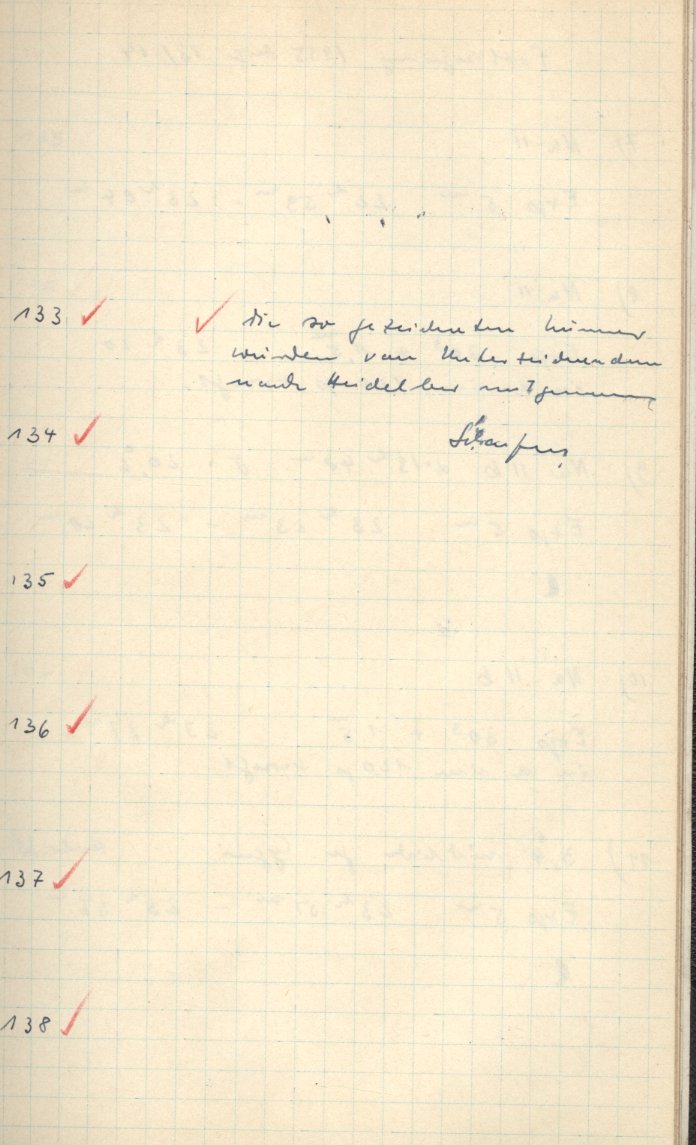 133 ✓ ✓ die so gezeichneten
wurden vom Unterzeichnenden
nach Heidelberg mitgenommen
134 ✓
135 ✓
136 ✓
137 ✓
138 ✓